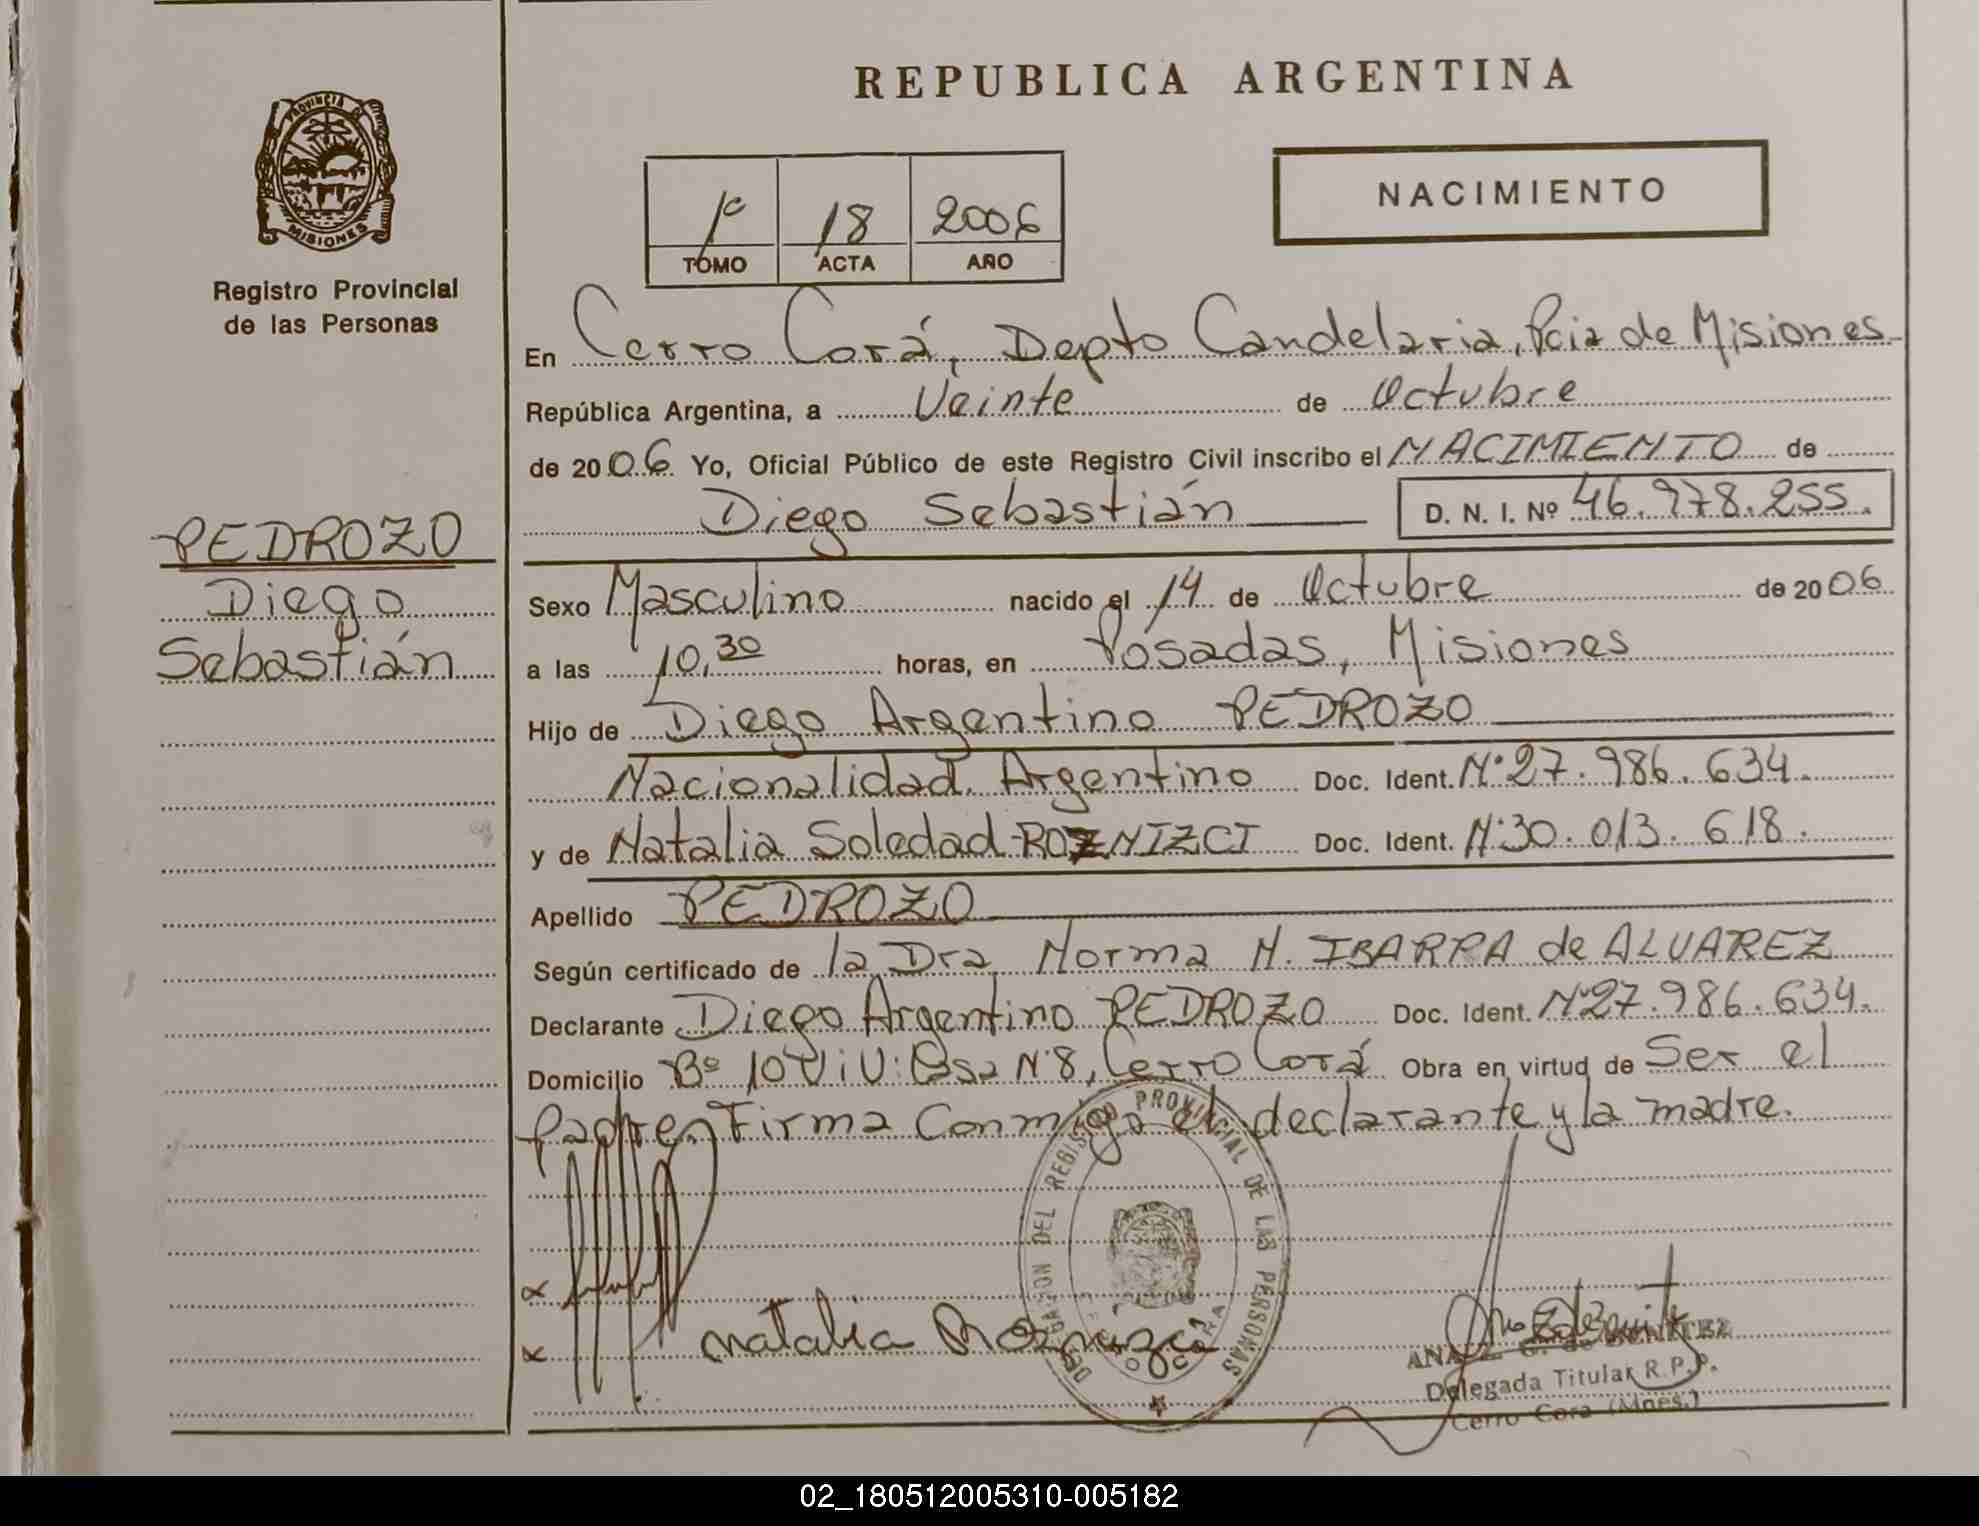 REPUBLICA ARGENTINA
PROVINCIA
MISIONES
Registro Provincial
de las Personas
1º 18 2006
TOMO ACTA AÑO
NACIMIENTO
En Cerro Corá, Depto Candelaria, Pcia de Misiones
República Argentina, a Veinte de Octubre
de 2006 Yo, Oficial Público de este Registro Civil inscribo el NACIMIENTO de
Diego Sebastián D. N. I. Nº 46.978.255.
PEDROZO
Diego
Sebastián
Sexo Masculino nacido el 14 de Octubre de 2006
a las 10,30 horas, en Posadas, Misiones
Hijo de Diego Argentino PEDROZO
Nacionalidad Argentino Doc. Ident. Nº 27.986.634.
y de Natalia Soledad ROZNIZCI Doc. Ident. Nº 30.013.618.
Apellido PEDROZO
Según certificado de la Dra Norma N. IBARRA de ALVAREZ
Declarante Diego Argentino PEDROZO Doc. Ident. Nº 27.986.634.
Domicilio Bº 10 Viv: Csa Nº 8, Cerro Corá Obra en virtud de Ser el
padre. Firma Conmigo el declarante y la madre.
DELEGACION DEL REGISTRO PROVINCIAL DE LAS PERSONAS
CERRO CORA
x
x natalia Roznizci
Delegada Titular R.P.P.
Cerro Cora (Mnes.)
02_180512005310-005182